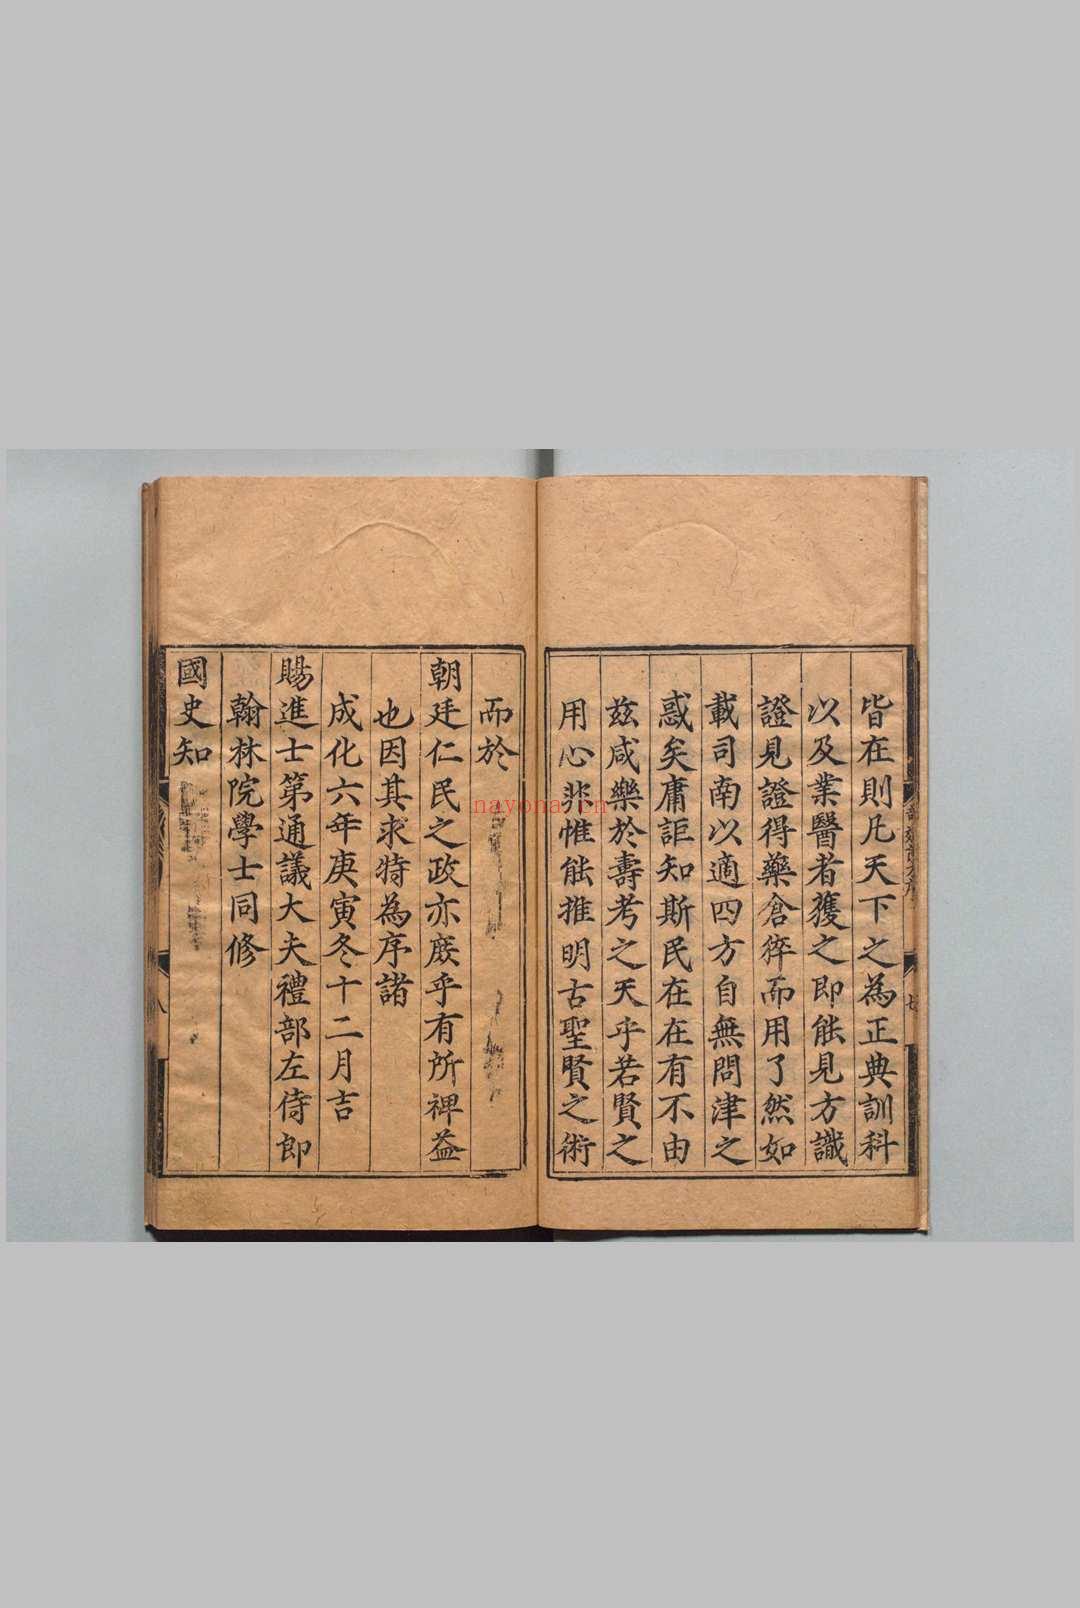 皆在則凡天下之為正典訓科
以及業醫者獲之即能見方識
證見證得藥倉猝而用了然如
載司南以適四方自無問津之
惑矣庸詎知斯民在在有不由
茲咸樂於壽考之天乎若賢之
用心非惟能推明古聖賢之術
而於
朝廷仁民之政亦庶乎有所裨益
也因其求特為序諸
成化六年庚寅冬十二月吉
賜進士第通議大夫禮部左侍郎
翰林院學士同修
國史知
七
八
nayona.cn